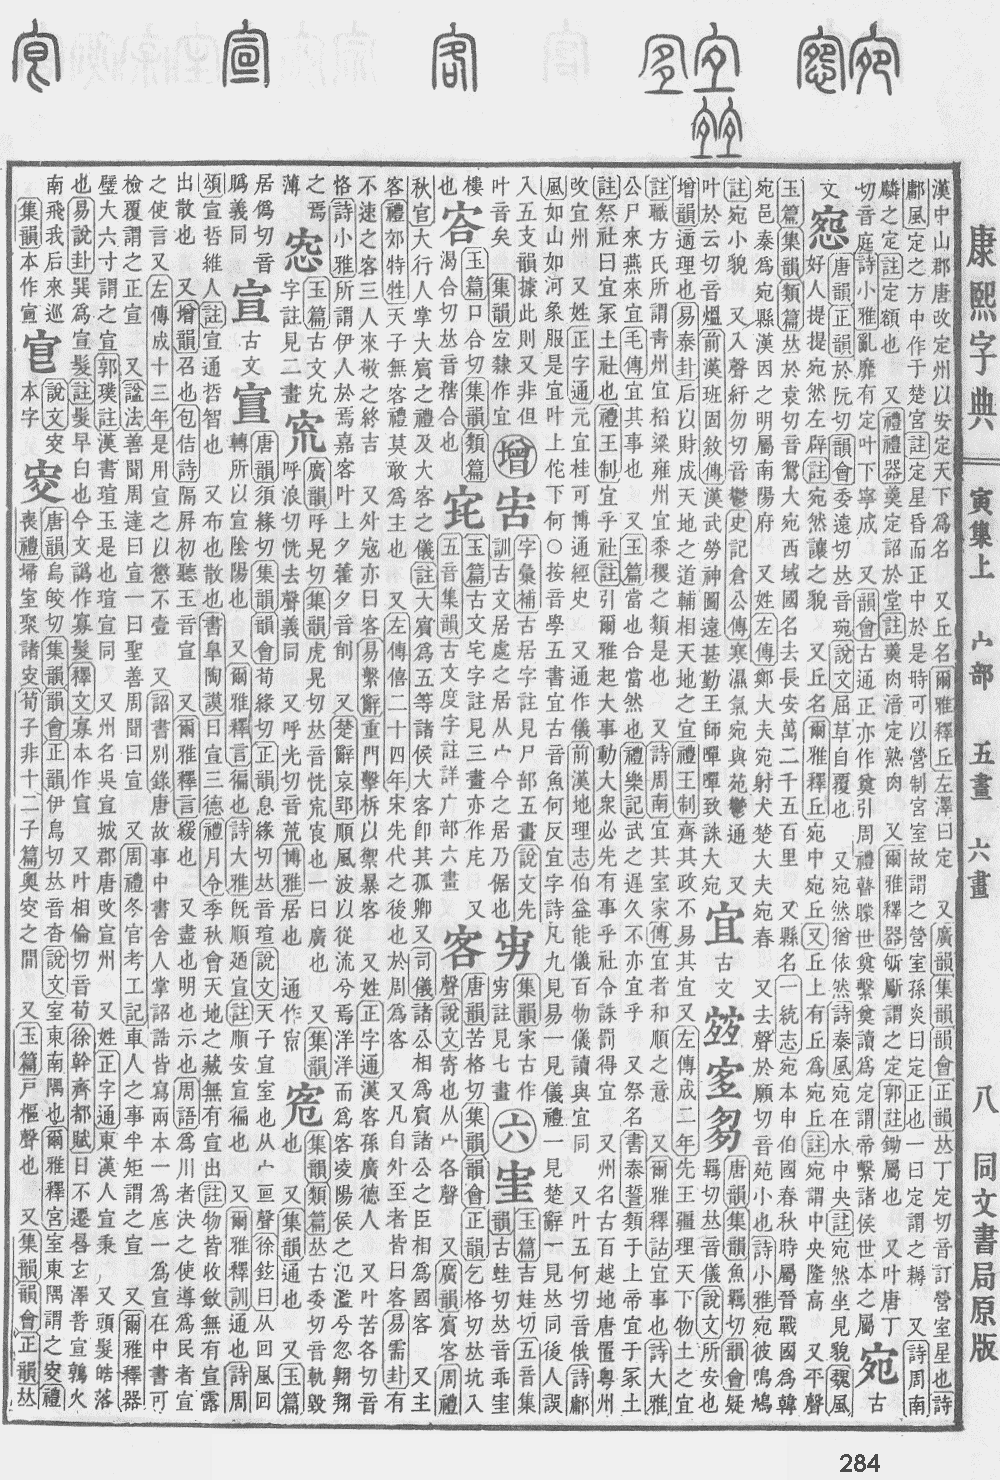 康熙字典 寅集上 宀部 五畫 六畫 八 同文書局原版
漢中山郡唐改定州以安定天下爲名 又丘名爾雅釋丘左澤曰定 又廣韻集韻韻會正韻𠀤丁定切音訂營室星也詩
鄘風定之方中作于楚宮註定星昏而正中於是時可以營制宮室故謂之營室孫炎曰定正也一曰定謂之耨 又詩周南
麟之定註定額也 又禮禮器羹定詔於堂註羹肉湆定熟肉 又爾雅釋器斪斸謂之定郭註鋤屬也 又叶唐丁
切音庭詩小雅亂靡有定叶下寧成 又韻會古通正亦作奠引周禮瞽矇世奠繫奠讀爲定謂帝繫諸侯世本之屬 宛 古
文 惌 唐韻正韻於阮切韻會委遠切𠀤音琬說文屈草自覆也 又宛然猶依然詩秦風宛在水中央註宛然坐見貌魏風
好人提提宛然左辟註宛然讓之貌 又丘名爾雅釋丘宛中宛丘又丘上有丘爲宛丘註宛謂中央隆高 又平聲
玉篇集韻類篇𠀤於袁切音鴛大宛西域國名去長安萬二千五百里 又縣名一統志宛本申伯國春秋時屬晉戰國爲韓
宛邑秦爲宛縣漢因之明屬南陽府 又姓左傳鄭大夫宛射犬楚大夫宛春 又去聲於願切音苑小也詩小雅宛彼鳴鳩
註宛小貌 又入聲紆勿切音鬱史記倉公傳寒濕氣宛與苑鬱通 又
叶於云切音熅前漢班固敘傳漢武勞神圖遠甚勤王師嘽嘽致誅大宛 宜 古文 𡪀 𡧧 𡖊 唐韻集韻魚羈切韻會疑
羈切𠀤音儀說文所安也
增韻適理也易泰卦后以財成天地之道輔相天地之宜禮王制齊其政不易其宜又左傳成二年先王疆理天下物土之宜
註職方氏所謂靑州宜稻梁雍州宜黍稷之類是也 又詩周南宜其室家傳宜者和順之意 又爾雅釋詁宜事也詩大雅
公尸來燕來宜毛傳宜其事也 又玉篇當也合當然也禮樂記武之遲久不亦宜乎 又祭名書泰誓類于上帝宜于冢土
註祭社曰宜冢土社也禮王制宜乎社註引爾雅起大事動大衆必先有事乎社令誅罰得宜 又州名古百越地唐置粵州
改宜州 又姓正字通元宜桂可博通經史 又通作儀前漢地理志伯益能儀百物儀讀與宜同 又叶五何切音俄詩鄘
風如山如河象服是宜叶上佗下何○按音學五書宜古音魚何反宜字詩凡九見易一見儀禮一見楚辭一見𠀤同後人誤
入五支韻據此則又非但
叶音矣 集韻㝖隸作宜 增 㝒 字彙補古居字註見尸部五畫說文先
訓古文居處之居从宀今之居乃倨也 㝍 集韻家古作
㝍註見七畫 六 㝝 玉篇吉娃切五音集
韻古蛙切𠀤音乖㝝
樓 㝓 玉篇口合切集韻類篇
渴合切𠀤音㿇合也
也 宅 玉篇古文宅字註見三畫亦作庑 又
五音集韻古文度字註詳广部六畫 客 唐韻苦格切集韻韻會正韻乞格切𠀤坑入
聲說文寄也从宀各聲 又廣韻賓客周禮
秋官大行人掌大賓之禮及大客之儀註大賓爲五等諸侯大客卽其孤卿又司儀諸公相爲賓諸公之臣相爲國客 又主
客禮郊特牲天子無客禮莫敢爲主也 又左傳僖二十四年宋先代之後也於周爲客 又凡自外至者皆曰客易需卦有
不速之客三人來敬之終吉 又外寇亦曰客易繫辭重門擊柝以禦暴客 又姓正字通漢客孫廣德人 又叶苦各切音
恪詩小雅所謂伊人於焉嘉客叶上夕藿夕音削 又楚辭哀郢順風波以從流兮焉洋洋而爲客凌陽侯之氾濫兮忽翱翔
之焉
薄 㤅 玉篇古文
字註見二畫 㝑 廣韻呼晃切集韻虎晃切𠀤音怳㝑㝗也一曰廣也 又集韻
呼浪切恍去聲義同 又呼光切音荒博雅居也 通作㡆 㝠 集韻類篇𠀤古委切音軌毀
也 又集韻通也 又玉篇
居僞切音
𡧮義同 宣 古文 㝨 唐韻須緣切集韻韻會荀緣切正韻息緣切𠀤音瑄說文天子宣室也从宀亘聲徐鉉曰从回風回
轉所以宣陰陽也 又爾雅釋言徧也詩大雅旣順廼宣註順安宣徧也 又爾雅釋訓通也詩周
頌宣哲維人註宣通哲智也 又布也散也書臯陶謨日宣三德禮月令季秋會天地之藏無有宣出註物皆收斂無有宣露
出散也 又增韻召也包佶詩隔屛初聽玉音宣 又爾雅釋言緩也 又盡也明也示也周語爲川者決之使導爲民者宣
之使言又左傳成十三年是用宣之以懲不壹 又詔書別錄唐故事中書舍人掌詔誥皆寫兩本一爲底一爲宣在中書可
檢覆謂之正宣 又諡法善聞周達曰宣一曰聖善周聞曰宣 又周禮冬官考工記車人之事半矩謂之宣 又爾雅釋器
璧大六寸謂之宣郭璞註漢書瑄玉是也瑄宣同 又州名吳宣城郡唐改宣州 又姓正字通東漢人宣秉 又頭髮皓落
也易說卦巽爲宣髮註髮早白也今文譌作寡髮釋文寡本作宣 又叶相倫切音荀徐幹齊都賦日不遷晷玄澤普宣鶉火
南飛我后來巡
集韻本作㝨 㝔 說文
本字 㝘 唐韻烏皎切集韻韻會正韻伊鳥切𠀤音杳說文室東南隅也爾雅釋宮室東南隅謂之㝘禮
喪禮埽室聚諸㝘荀子非十二子篇奧㝘之閒 又玉篇戸樞聲也 又集韻韻會正韻𠀤
284